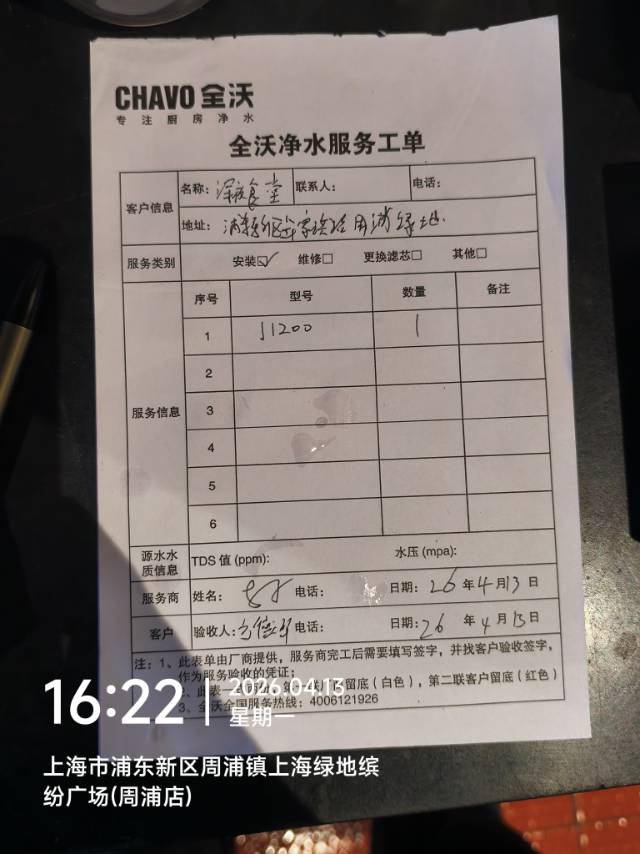 CHAVO 全沃
专注厨房净水
全沃净水服务工单
客户信息 名称: 深夜食堂 联系人: 电话:
地址: 浦东新区 周浦绿地
服务类别 安装☑ 维修□ 更换滤芯□ 其他□
服务信息 序号 型号 数量 备注
1 J1200 1
2
3
4
5
6
源水水质信息 TDS 值 (ppm): 水压 (mpa):
服务商 姓名: 电话: 日期: 26 年 4 月 13 日
客户 验收人: 电话: 日期: 26 年 4 月 13 日
注: 1、此表单由厂商提供,服务商完工后需要填写签字,并找客户验收签字,
作为服务验收的凭证;
2、此表一 留底(白色),第二联客户留底(红色)
3、全沃全国服务热线: 4006121926
16:22
2026.04.13
星期一
上海市浦东新区周浦镇上海绿地缤
纷广场(周浦店)